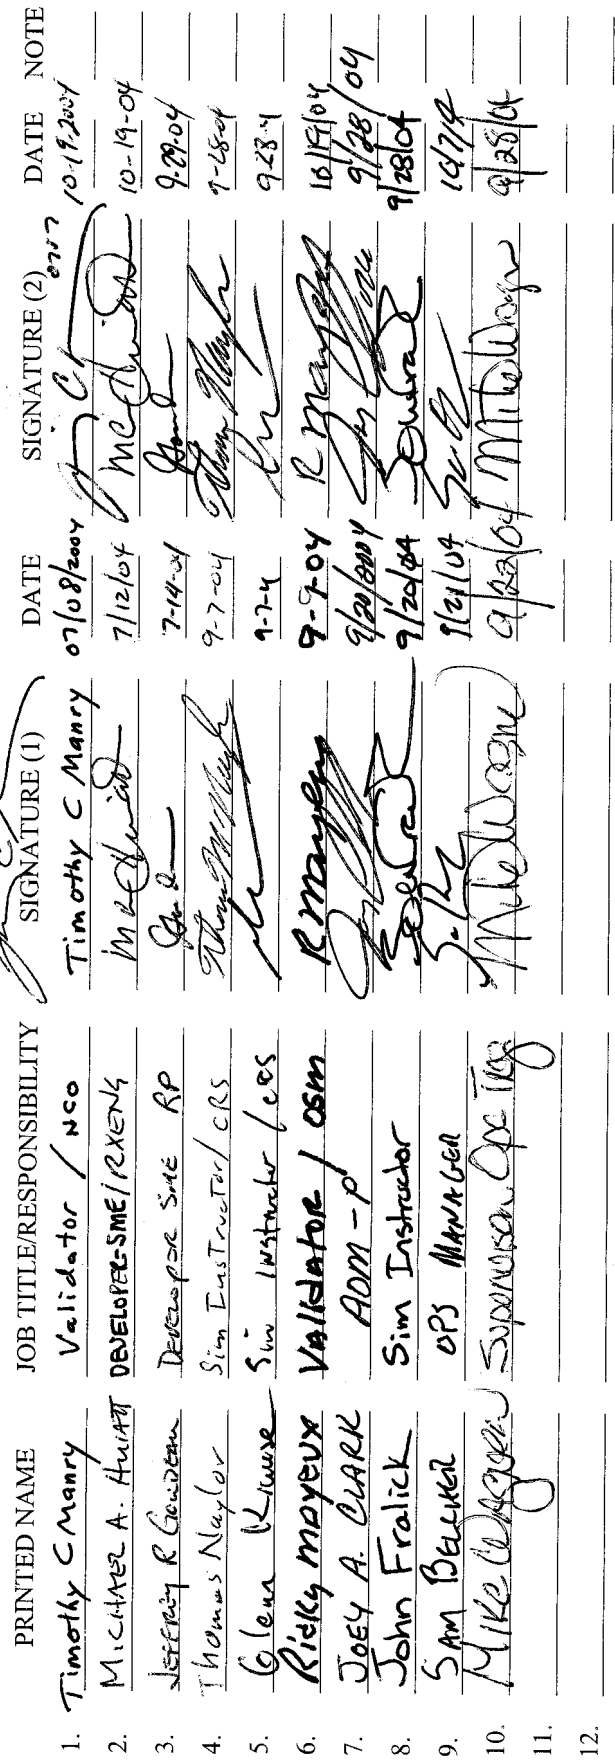 PRINTED NAME JOB TITLE/RESPONSIBILITY SIGNATURE (1) DATE SIGNATURE (2) DATE NOTE
1. Timothy C Manry Validator / NCO Timothy C Manry 07/08/2004 0707 10-19-2004
2. MICHAEL A. HUIATT DEVELOPER-SME/RXENG 7/12/04 10-19-04
3. JEFFREY R GAUDEAU DEVELOPER SME RP 7-14-04 9-29-04
4. Thomas Naylor Sim Instructor/ CRS 9-7-04 9-28-04
5. Glenn Krause Sim Instructor / CRS 9-7-4 9-28-4
6. Ricky mayeux Validator / OSM R mayeux 9-9-04 R mayeux 10/19/04
7. JOEY A. CLARK AOM-P 9/20/2004 9/28/04
8. John Fralick Sim Instructor 9/20/04 9/28/04
9. SAM BELCHER OPS MANAGER 9/21/04 10/7/4
10. MIKE WAGNER Supervisor Ops Trng Mike Wagner 9/22/04 Mike Wagner 9/28/04
11.
12.